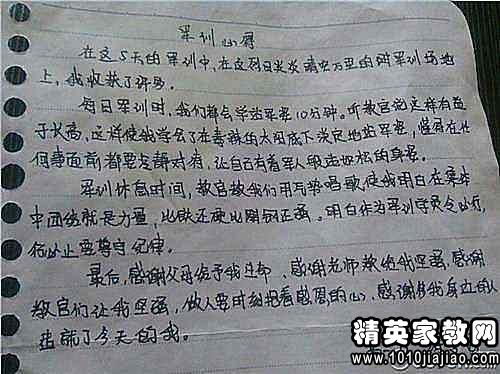 军训心得
在这5天的军训中,在这烈日炎炎晴空万里的军训场地
上,我收获了许多。
每日军训时,我们都会学站军姿10分钟。听教官说这样有益
于长高,这样使我学会了在毒辣的太阳底下淡定地站军姿,懂得在任
何事面前都要友静对待,让自己有着军人的身姿。
军训休息时间,教官教我们用气势唱歌使我明白在集体
中团结就是力量,比铁还硬比钢还强。明白作为军训学员令必行,
何必止要尊守纪律。
最后,感谢父母给予我生命,感谢老师教给我坚强,感谢
教官们让我坚强,做人要时刻抱着感恩的心,感谢我身边的人
造就了今天的我。
精英家教网
www.1010jiajiao.com